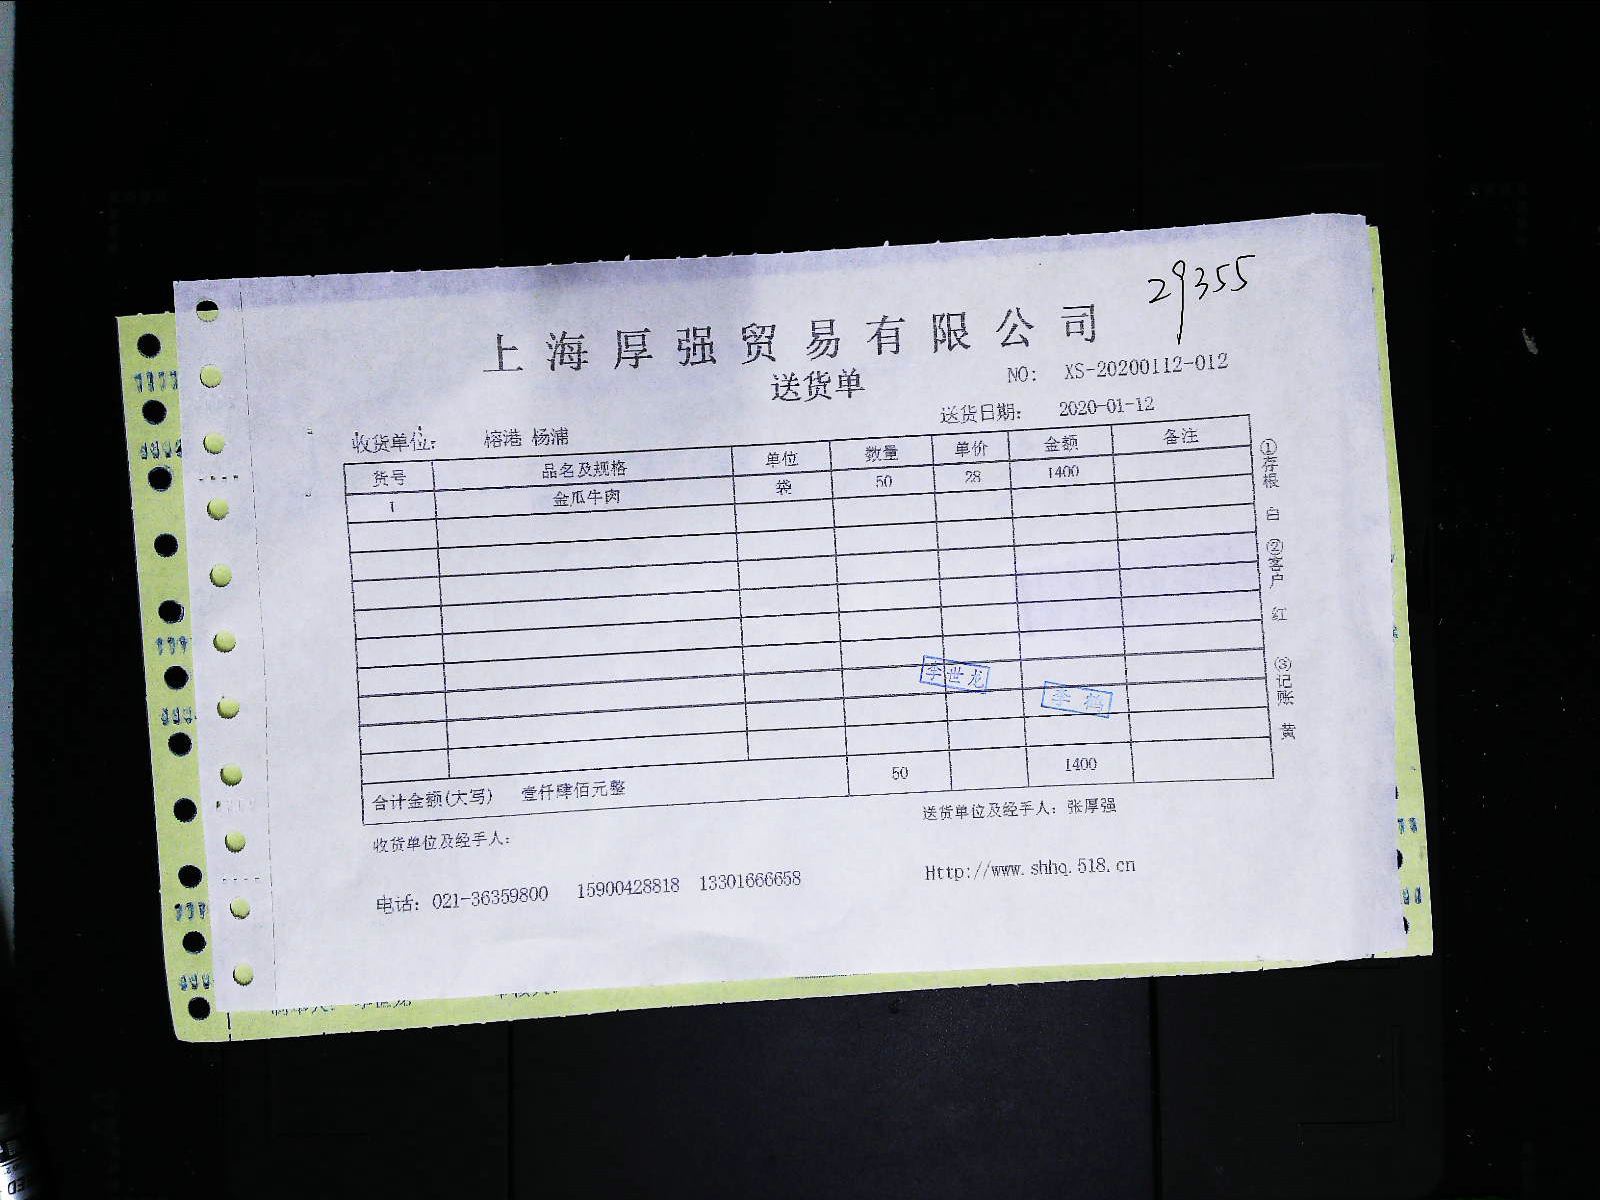 29355
上海厚强贸易有限公司
送货单
NO: XS-20200112-012
送货日期: 2020-01-12
收货单位: 榕港 杨浦
货号 品名及规格 单位 数量 单价 金额 备注
1 金瓜牛肉 袋 50 28 1400
李世龙
李 鹤
合计金额(大写) 壹仟肆佰元整 50 1400
收货单位及经手人:
送货单位及经手人: 张厚强
电话: 021-36359800 15900428818 13301666658
Http://www.shhq.518.cn
①存根 白 ②客户 红 ③记账 黄